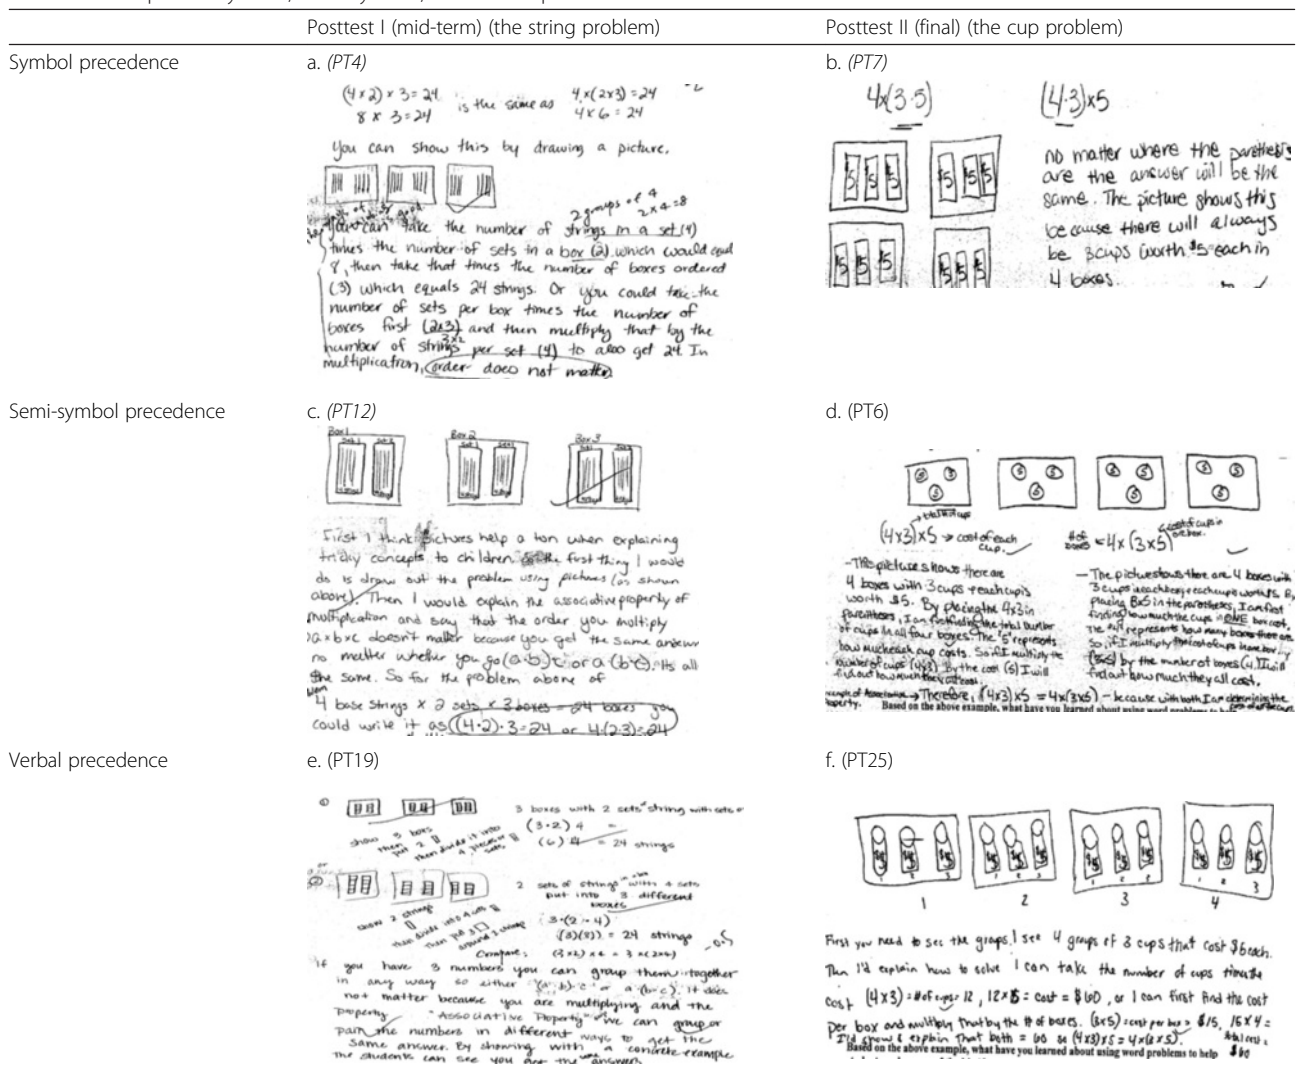 Posttest I (mid-term) (the string problem)
Posttest II (final) (the cup problem)
Symbol precedence
a. (PT4)
(4×2) × 3 = 24 is the same as 4×(2×3) = 24
8 × 3 = 24
4 × 6 = 24
You can show this by drawing a picture.
2 groups of 4
2 × 4 = 8
You can take the number of strings in a set (4)
times the number of sets in a box (2) which would equal
8, then take that times the number of boxes ordered
(3) which equals 24 strings. Or you could take the
number of sets per box times the number of
boxes first (2×3) and then multiply that by the
3×2
number of strings per set (4) to also get 24. In
multiplication, order does not matter
b. (PT7)
4×(3·5)
(4·3)×5
$5 $5 $5
$5 $5 $5
$5 $5 $5
$5 $5 $5
no matter where the parenthesis
are the answer will be the
same. The picture shows this
because there will always
be 3 cups worth $5 each in
4 boxes.
Semi-symbol precedence
c. (PT12)
Box 1
Box 2
Box 3
First I think pictures help a ton when explaining
tricky concepts to children. the first thing I would
do is draw out the problem using pictures (as shown
above). Then I would explain the associative property of
multiplication and say that the order you multiply
a×b×c doesn't matter because you get the same answer
no matter whether you go (a·b)c or a(b·c). Its all
the same. So for the problem above of
4 base strings × 2 sets × 3 boxes = 24 boxes you
could write it as (4·2)·3=24 or 4·(2·3)=24
d. (PT6)
5 5 5
5 5 5
5 5 5
5 5 5
total # of cups
(4×3)×5 → cost of each
cup.
# of
boxes
= 4×(3×5)
cost of cups in
one box.
- This picture shows there are
4 boxes with 3 cups + each cup is
worth $5. By placing the 4×3 in
parentheses, I am first finding the total number
of cups in all four boxes. The "5" represents
how much each cup costs. So if I multiply the
number of cups (4×3) by the cost (5) I will
find out how much they all cost.
- The picture shows there are 4 boxes with
3 cups in each box + each cup is worth $5. By
placing 3×5 in the parentheses, I am first
finding how much the cups in ONE box cost.
The "4" represents how many boxes there are
So, if I multiply the cost of cups in one box
(3×5) by the number of boxes (4) I will
find out how much they all cost.
Therefore, (4×3)×5 = 4×(3×5) - because with both I am determining the
Based on the above example, what have you learned about using word problems to help
Verbal precedence
e. (PT19)
①
show 3 boxes
then put 2
then divide it into
4 pieces or
sets
3 boxes with 2 sets string with sets
(3·2) 4 =
(6) 4 = 24 strings
②
show 2 strings
then divide into 4 sets
then put 3
around 3 strings
2 sets of strings with 4 sets
put into 3 different
boxes
3·(2·4)
(3)(8) = 24 strings
-0.5
Compare: (3×2) × 4 = 3 × (2×4)
If you have 3 numbers you can group them together
in any way so either (a·b)·c or a·(b·c). It does
not matter because you are multiplying and the
property "Associative Property" we can group or
pair the numbers in different ways to get the
same answer. By showing with a concrete example
the students can see you get the same answer
f. (PT25)
$5 $5 $5
$5 $5 $5
$5 $5 $5
$5 $5 $5
1 2 3
1 2 3
1 2 3
1 2 3
1 2 3 4
First you need to see the groups. I see 4 groups of 3 cups that cost $5 each.
Then I'd explain how to solve I can take the number of cups times the
cost (4×3) = # of cups = 12, 12×5 = cost = $60, or I can first find the cost
per box and multiply that by the # of boxes. (3×5) = cost per box = $15, 15×4 =
total cost =
$60
I'd show & explain that both = 60 so (4×3)×5 = 4×(3×5).
Based on the above example, what have you learned about using word problems to help